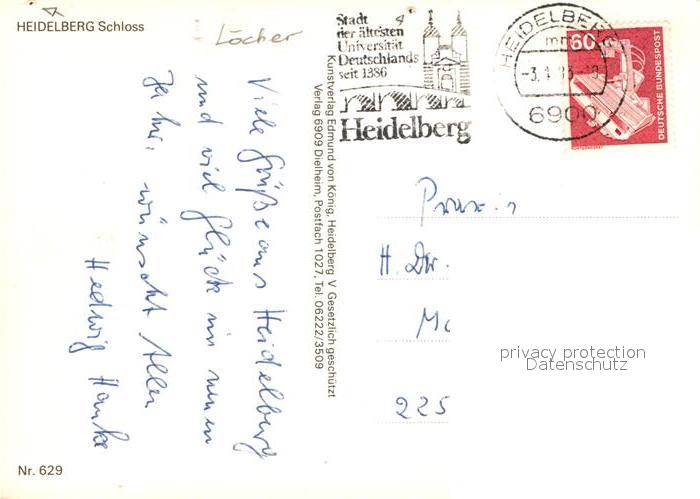 HEIDELBERG Schloss
Löcher
Viele Grüße aus Heidelberg
und viel Glück im neuen
Jahr, wünscht Allen
Hedwig Hanke
Nr. 629
Kunstverlag Edmund von König, Heidelberg V Gesetzlich geschützt
Verlag 6909 Dielheim, Postfach 1027, Tel. 06222/3509
Stadt
der ältesten
Universität
Deutschlands
seit 1386
Heidelberg
HEIDELBERG
6900
60
DEUTSCHE BUNDESPOST
Praxis
H. Dr.
225
privacy protection
Datenschutz